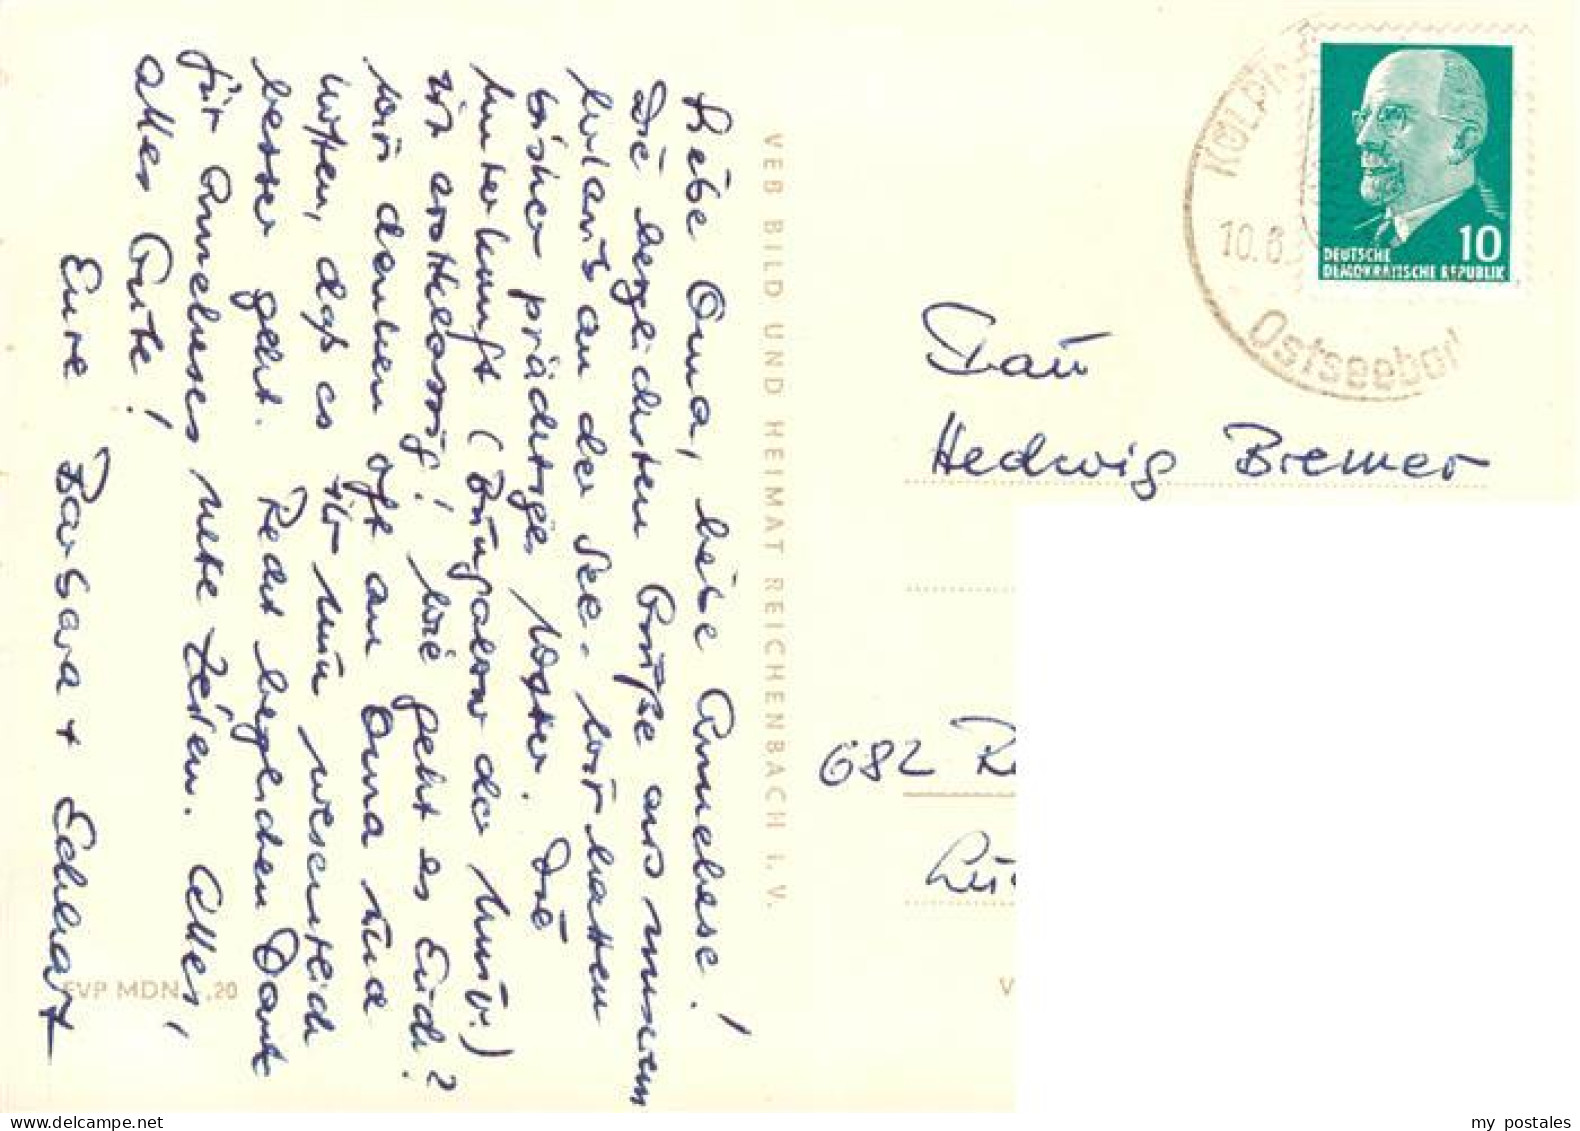 Liebe Oma, liebe Anneliese!
Die herzlichsten Grüße aus unserem
Urlaub an der See. Wir hatten
bisher prächtiges Wetter. Die
Unterkunft (Bungalow der Univ.)
ist erstklassig! Wie geht es Euch?
Wir denken oft an Oma und
hoffen, daß es ihr nun wesentlich
besser geht. Recht herzlichen Dank
für Annelieses nette Zeilen. Alles,
alles Gute!
Eure Barbara + Eckhart
VEB BILD UND HEIMAT REICHENBACH I. V.
EVP MDN ,20
KÖLPIN
10.6.
Ostseebad
10
DEUTSCHE
DEMOKRATISCHE REPUBLIK
Frau
Hedwig Bremer
682 R
V
my postales